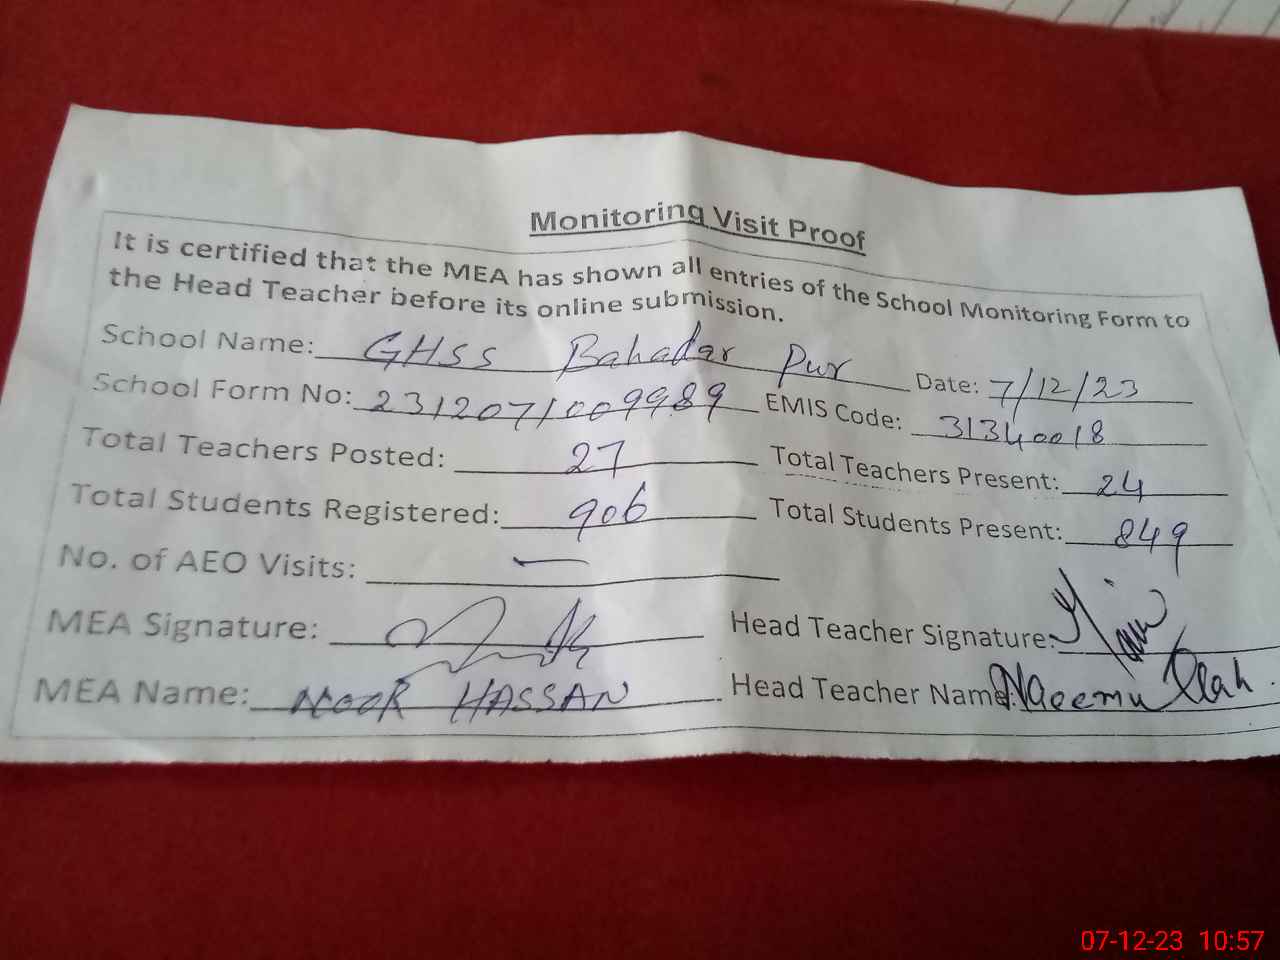 Monitoring Visit Proof
It is certified that the MEA has shown all entries of the School Monitoring Form to
the Head Teacher before its online submission.
School Name: GHSS Bahadar Pur Date: 7/12/23
School Form No: 2312071009989 EMIS Code: 31340018
Total Teachers Posted: 27 Total Teachers Present: 24
Total Students Registered: 906 Total Students Present: 849
No. of AEO Visits: —
MEA Signature: Head Teacher Signature:
MEA Name: NOOR HASSAN Head Teacher Name: Naeemullah.
07-12-23 10:57